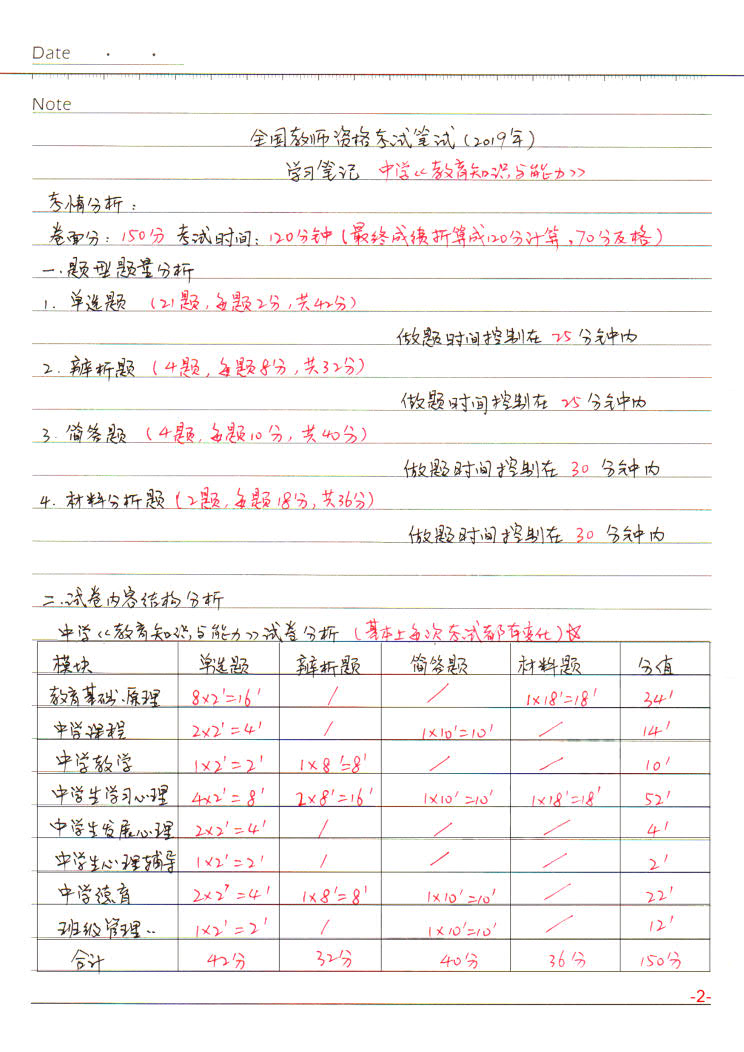 Date · ·
Note
全国教师资格考试笔试(2019年)
学习笔记 中学《教育知识与能力》
考情分析:
卷面分:150分 考试时间:120分钟(最终成绩折算成120分计算,70分及格)
一.题型题量分析
1. 单选题 (21题,每题2分,共42分)
做题时间控制在 25 分钟内
2. 辨析题 (4题,每题8分,共32分)
做题时间控制在 25 分钟内
3. 简答题 (4题,每题10分,共40分)
做题时间控制在 30 分钟内
4. 材料分析题(2题,每题18分,共36分)
做题时间控制在 30 分钟内
二.试卷内容结构分析
中学《教育知识与能力》试卷分析(基本上每次考试都有变化)
模块 单选题 辨析题 简答题 材料题 分值
教育基础.原理 8×2'=16' / / 1×18'=18' 34'
中学课程 2×2'=4' / 1×10'=10' / 14'
中学教学 1×2'=2' 1×8'=8' / / 10'
中学生学习心理 4×2'=8' 2×8'=16' 1×10'=10' 1×18'=18' 52'
中学生发展心理 2×2'=4' / / / 4'
中学生心理辅导 1×2'=2' / / / 2'
中学德育 2×2'=4' 1×8'=8' 1×10'=10' / 22'
班级管理.. 1×2'=2' / 1×10'=10' / 12'
合计 42分 32分 40分 36分 150分
-2-